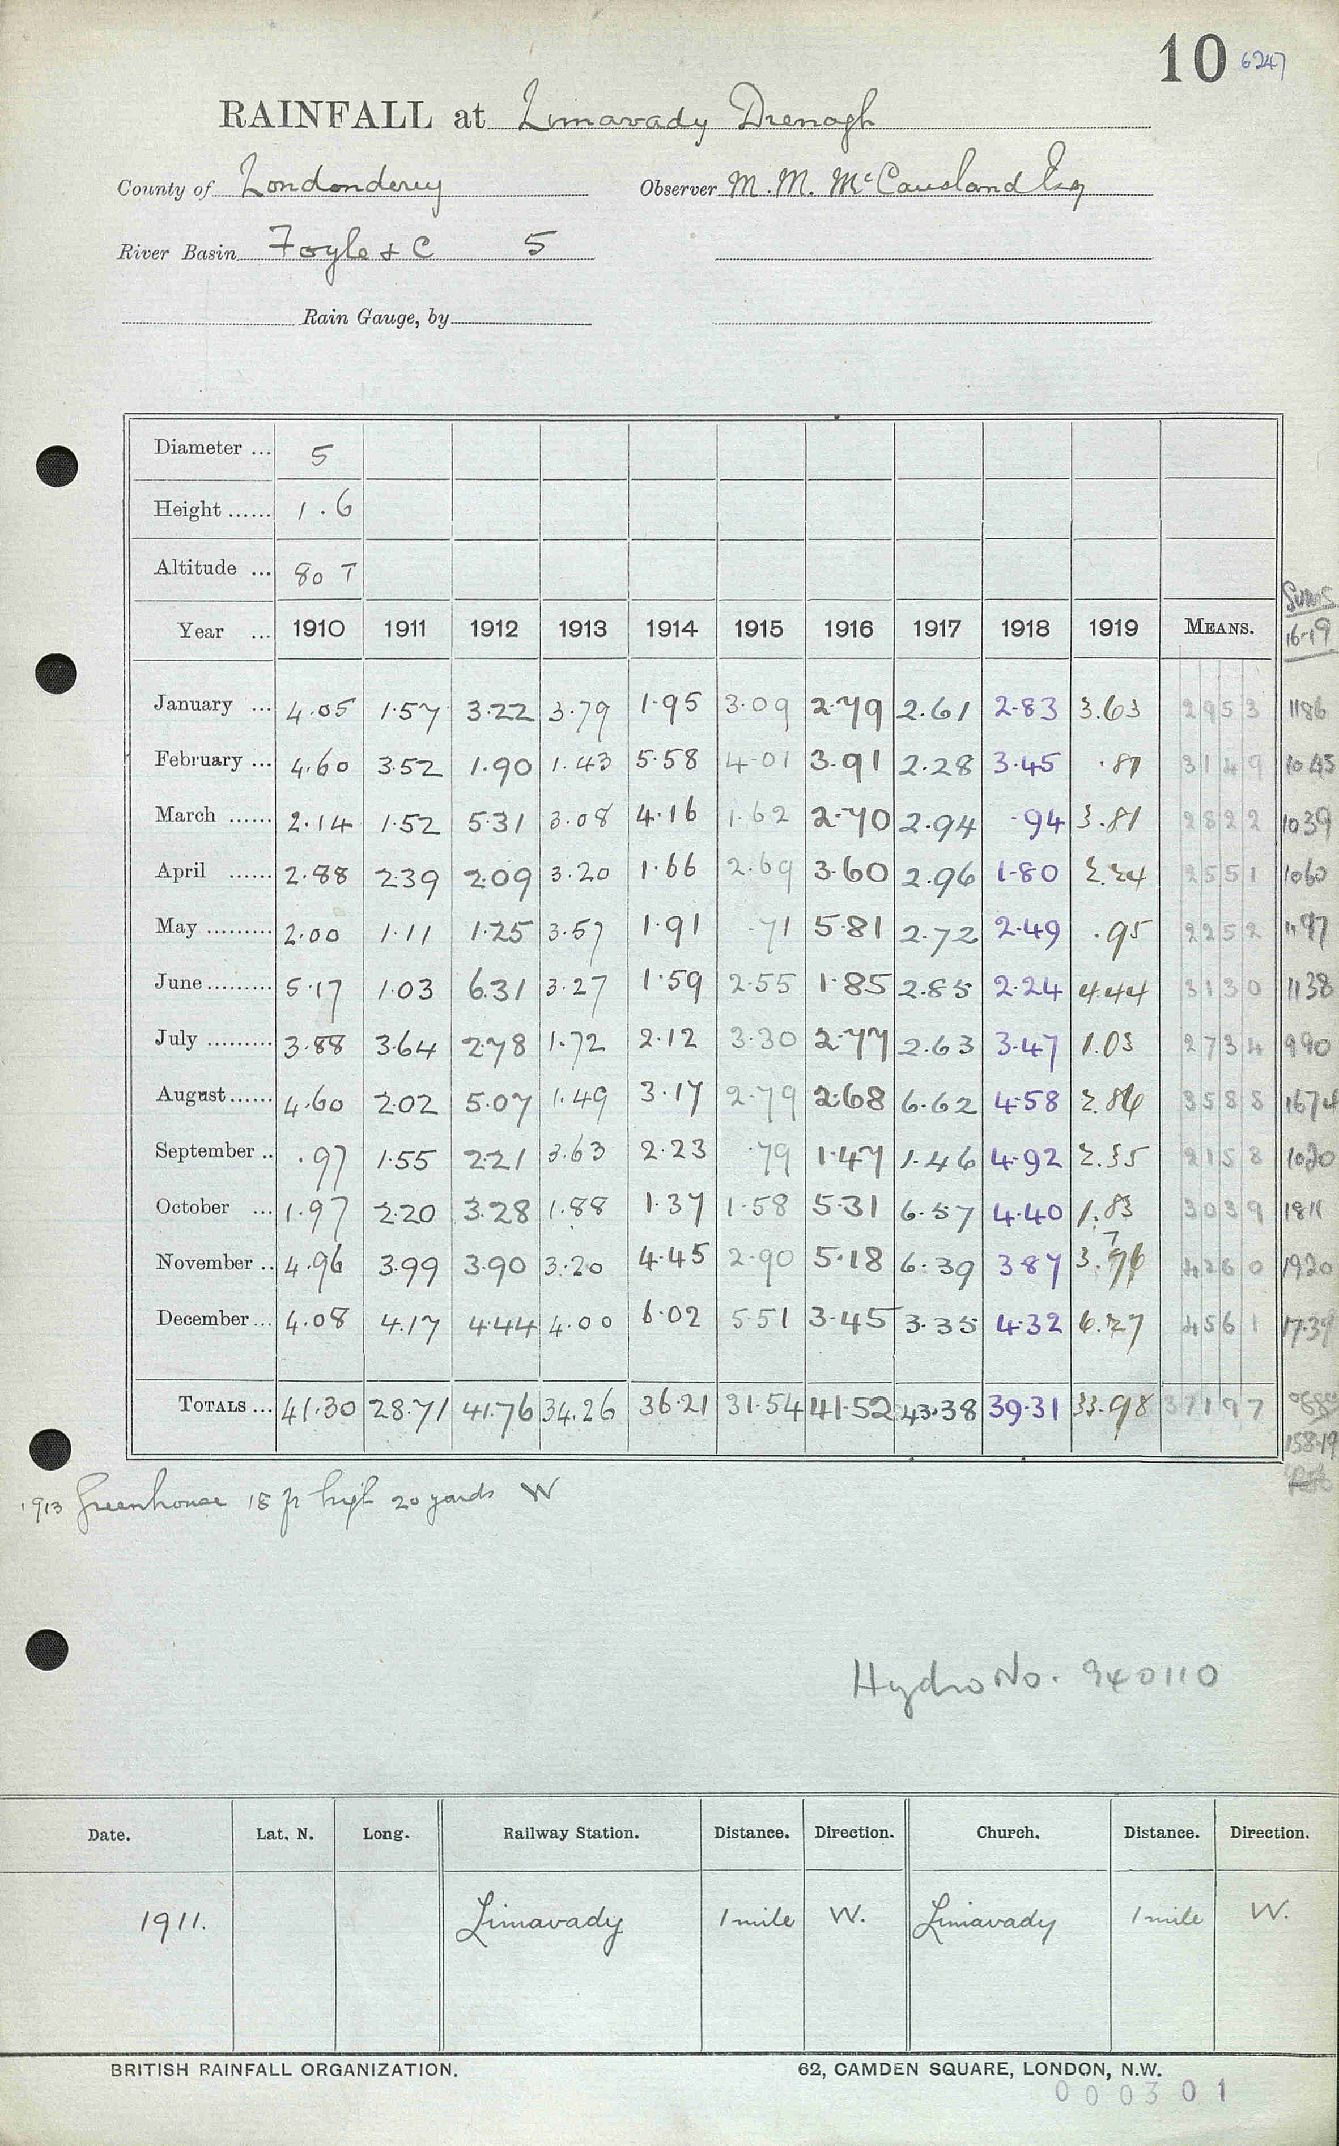 10 6247
RAINFALL at Limavady Drenagh
County of Londonderry Observer M. M. McCausland Esq
River Basin Foyle & C 5
Rain Gauge, by
Diameter ... 5
Height ...... 1.6
Altitude ... 80 T
Sums
Year ... 1910 1911 1912 1913 1914 1915 1916 1917 1918 1919 MEANS. 16-19
January ... 4.05 1.57 3.22 3.79 1.95 3.09 2.79 2.61 2.83 3.63 2953 1186
February ... 4.60 3.52 1.90 1.43 5.58 4.01 3.91 2.28 3.45 .81 3149 1045
March ...... 2.14 1.52 5.31 3.08 4.16 1.62 2.70 2.94 .94 3.81 2822 1039
April ...... 2.88 2.39 2.09 3.20 1.66 2.69 3.60 2.96 1.80 2.24 2551 1060
May ......... 2.00 1.11 1.25 3.57 1.91 .71 5.81 2.72 2.49 .95 2252 1197
June ......... 5.17 1.03 6.31 3.27 1.59 2.55 1.85 2.85 2.24 4.44 3130 1138
July ......... 3.88 3.64 2.78 1.72 2.12 3.30 2.77 2.63 3.47 1.03 2734 990
August ...... 4.60 2.02 5.07 1.49 3.17 2.79 2.68 6.62 4.58 2.86 3588 1674
September .. .97 1.55 2.21 3.63 2.23 .79 1.47 1.46 4.92 2.35 2158 1020
October ... 1.97 2.20 3.28 1.88 1.37 1.58 5.31 6.57 4.40 1.83 3039 1811
November .. 4.96 3.99 3.90 3.20 4.45 2.90 5.18 6.39 3.87 3.76 4260 1920
December ... 4.08 4.17 4.44 4.00 6.02 5.51 3.45 3.35 4.32 6.27 4561 17.39
TOTALS ... 41.30 28.71 41.76 34.26 36.21 31.54 41.52 43.38 39.31 33.98 37197
15819
1913 Greenhouse 15 ft high 20 yards W
Hydro No. 940110
Date. Lat. N. Long. Railway Station. Distance. Direction. Church. Distance. Direction.
1911. Limavady 1 mile W. Limavady 1 mile W.
BRITISH RAINFALL ORGANIZATION. 62, CAMDEN SQUARE, LONDON, N.W.
000301